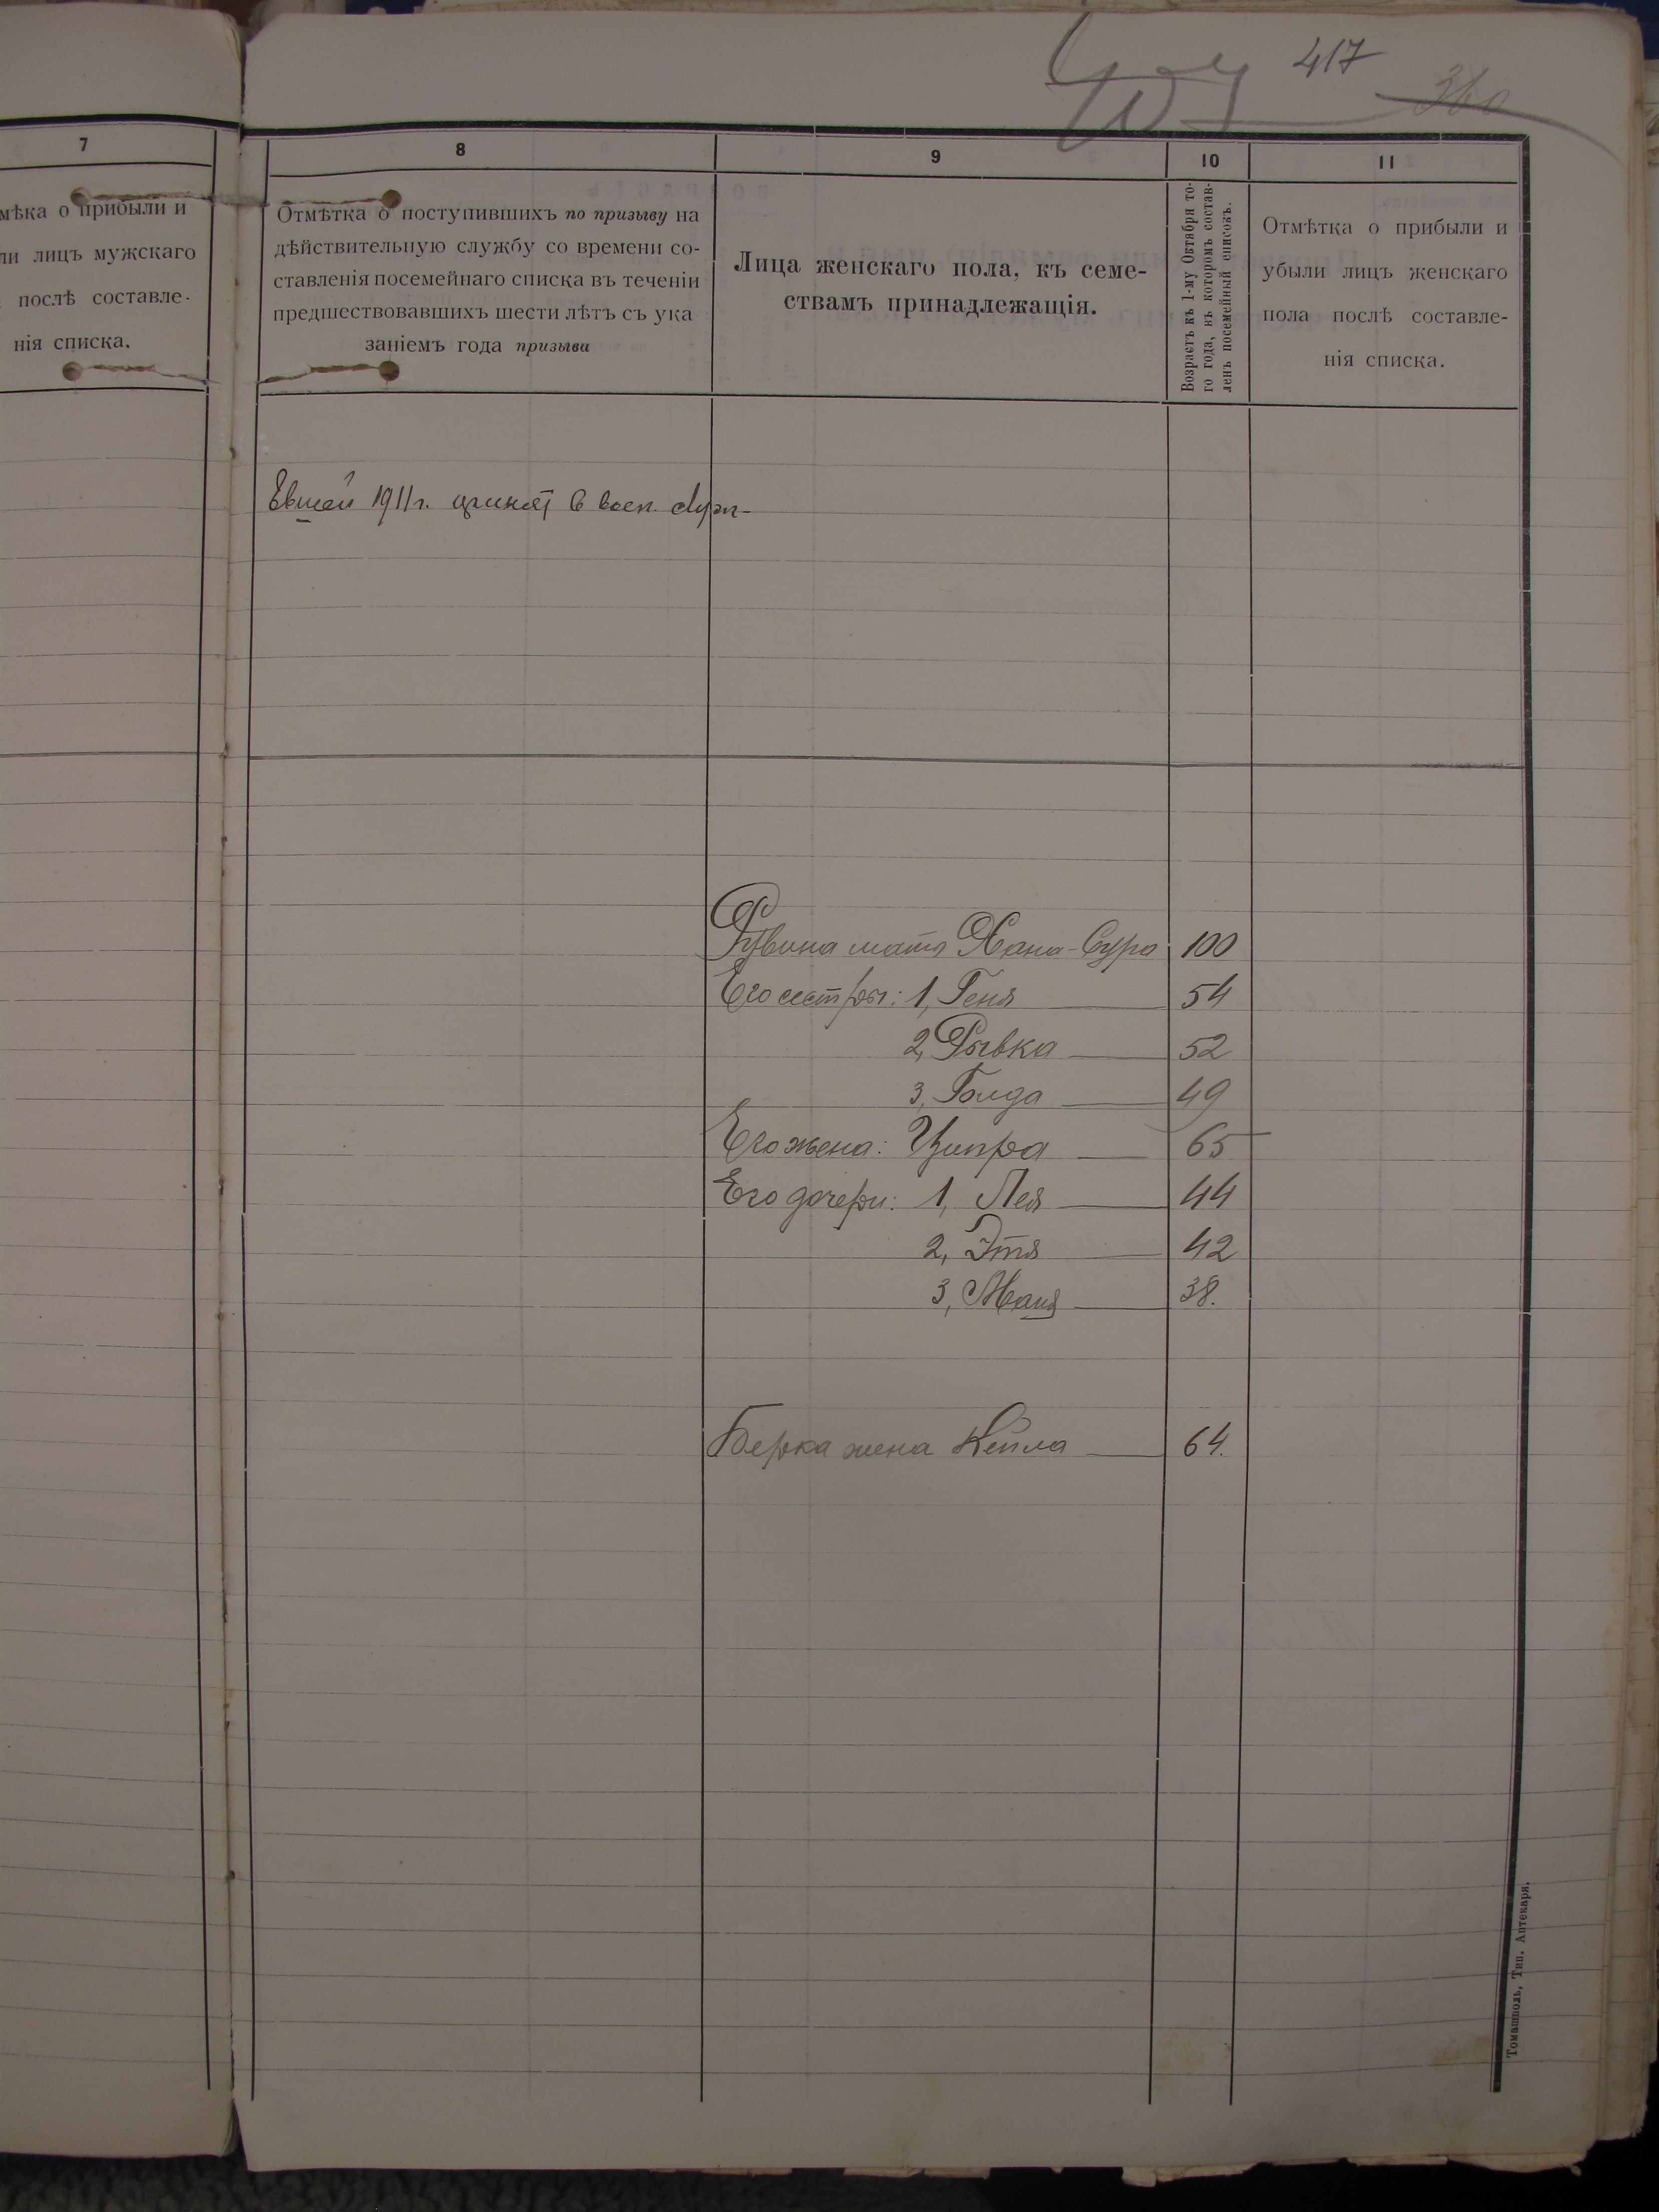 417
360
7
мѣка о прибыли и
ли лицъ мужскаго
послѣ составле-
нія списка.
8
Отмѣтка о поступившихъ по призыву на
дѣйствительную службу со времени со-
ставленія посемейнаго списка въ теченіи
предшествовавшихъ шести лѣтъ съ ука
заніемъ года призыва
9
Лица женскаго пола, къ семе-
ствамъ принадлежащія.
10
Возрастъ къ 1-му Октября то-
го года, въ которомъ состав-
ленъ посемейный списокъ.
11
Отмѣтка о прибыли и
убыли лицъ женскаго
пола послѣ составле-
нія списка.
1911 г. принят в воен. служ-
Рувина мать Хана-Сура 100
Его сестры: 1, Геня 54
2, Рывка 52
3, Голда 49
Его жена: Ципра 65
Его дочери: 1, Лея 44
2, Этя 42
3, Маня 38.
Берка жена Кейла 64.
Томашполь, Тип. Аптекаря.